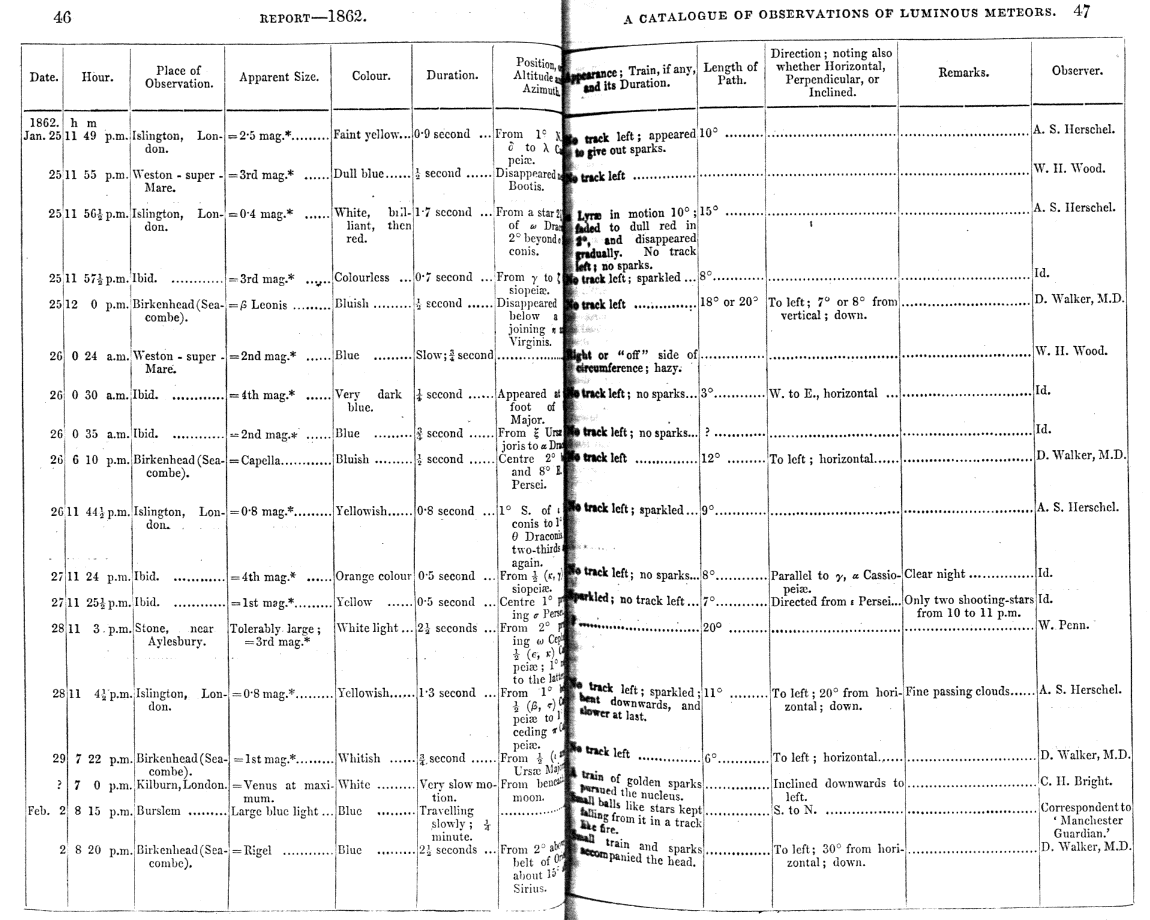 46 REPORT—1862.
A CATALOGUE OF OBSERVATIONS OF LUMINOUS METEORS. 47
Date. Hour. Place of Observation. Apparent Size. Colour. Duration. Position, Altitude Azimuth Appearance; Train, if any, and its Duration. Length of Path. Direction; noting also whether Horizontal, Perpendicular, or Inclined. Remarks. Observer.
1862. h m
Jan. 25 11 49 p.m. Islington, Lon- =2·5 mag.*......... Faint yellow... 0·9 second ... From 1° No track left; appeared 10° ......... A. S. Herschel.
don. δ to λ to give out sparks.
peiæ.
25 11 55 p.m. Weston - super - =3rd mag.* ...... Dull blue...... ½ second ...... Disappeared No track left ............... W. H. Wood.
Mare. Bootis.
25 11 56½ p.m. Islington, Lon- =0·4 mag.* ...... White, bril- 1·7 second ... From a star Lyræ in motion 10°; 15° ......... A. S. Herschel.
don. liant, then of ω faded to dull red in
red. 2° beyond and disappeared
conis. gradually. No track
left; no sparks.
25 11 57½ p.m. Ibid. ............ =3rd mag.* ...... Colourless ... 0·7 second ... From γ to No track left; sparkled ... 8°......... Id.
siopeiæ.
25 12 0 p.m. Birkenhead (Sea- =β Leonis ...... Bluish ........ ½ second ...... Disappeared No track left ............... 18° or 20° To left; 7° or 8° from ......... D. Walker, M.D.
combe). below a vertical; down.
joining
Virginis.
26 0 24 a.m. Weston - super - =2nd mag.* ...... Blue ......... Slow; ¾ second ............ Right or "off" side of ......... W. H. Wood.
Mare. circumference; hazy.
26 0 30 a.m. Ibid. ............ =4th mag.* ...... Very dark ¼ second ...... Appeared at No track left; no sparks... 3° ......... W. to E., horizontal ... Id.
blue. foot of
Major.
26 0 35 a.m. Ibid. ............ =2nd mag.* ...... Blue ......... ¾ second ...... From ξ No track left; no sparks... ? ......... Id.
joris to α
26 6 10 p.m. Birkenhead (Sea- =Capella............ Bluish ......... ½ second ...... Centre 2° No track left ............... 12° ......... To left; horizontal..... D. Walker, M.D.
combe). and 8°
Persei.
26 11 44½ p.m. Islington, Lon- =0·8 mag.*......... Yellowish...... 0·8 second ... 1° S. of No track left; sparkled ... 9° ......... A. S. Herschel.
don. conis to
θ Draconis
two-thirds
again.
27 11 24 p.m. Ibid. ............ =4th mag.* ...... Orange colour 0·5 second ... From ½ (κ, No track left; no sparks... 8°......... Parallel to γ, α Cassio- Clear night ............ Id.
siopeiæ. peiæ.
27 11 25½ p.m. Ibid. ............ =1st mag.* ...... Yellow ...... 0·5 second ... Centre 1° Sparkled; no track left ... 7° ......... Directed from ε Persei... Only two shooting-stars Id.
ing σ from 10 to 11 p.m.
28 11 3 p.m. Stone, near Tolerably large; White light ... 2½ seconds ... From 2° ?............... 20° ......... W. Penn.
Aylesbury. =3rd mag.* ing ω
½ (ε, κ)
peiæ; 1°
to the
28 11 4½ p.m. Islington, Lon- =0·8 mag.*......... Yellowish...... 1·3 second ... From 1° No track left; sparkled; 11° ......... To left; 20° from hori- Fine passing clouds...... A. S. Herschel.
don. ½ (β, bent downwards, and zontal; down.
peiæ to slower at last.
ceding
peiæ.
29 7 22 p.m. Birkenhead (Sea- =1st mag.*......... Whitish ...... ¾ second ...... From ½ No track left ............... 6° ......... To left; horizontal..... D. Walker, M.D.
combe). Ursæ
? 7 0 p.m. Kilburn, London. =Venus at maxi- White ......... Very slow mo- From A train of golden sparks ......... Inclined downwards to ......... C. H. Bright.
mum. tion. moon. pursued the nucleus. left.
Feb. 2 8 15 p.m. Burslem ......... Large blue light ... Blue ......... Travelling ............ Small balls like stars kept ......... S. to N. ......... Correspondent to
slowly; ¼ falling from it in a track 'Manchester
minute. like fire. Guardian.'
2 8 20 p.m. Birkenhead (Sea- =Rigel ............ Blue ......... 2½ seconds ... From 2° Small train and sparks ......... To left; 30° from hori- ......... D. Walker, M.D.
combe). belt of accompanied the head. zontal; down.
about 15°
Sirius.